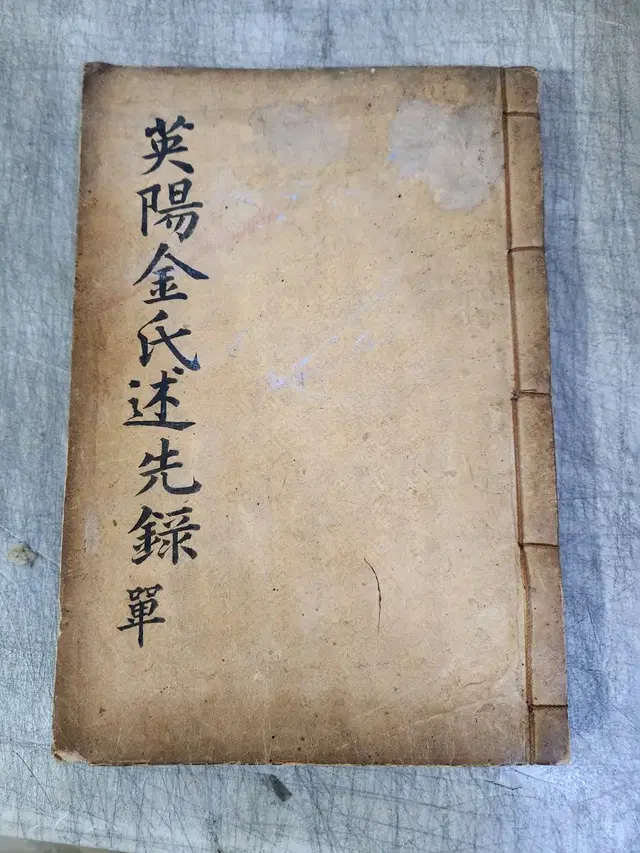 英陽金氏述先錄 單